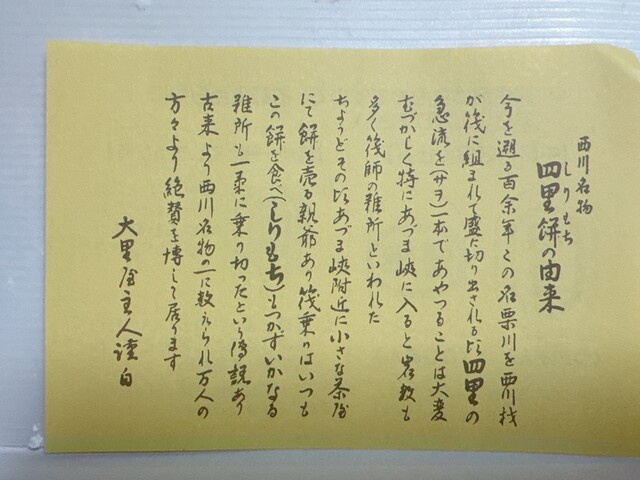 西川名物
しりもち
四里餅の由来
今を遡る百余年この名栗川を西川材
が筏に組まれて盛に切り出される頃四里の
急流を(サヲ)一本であやつることは大変
むづかしく特にあづま峡に入ると岩数も
多く筏師の難所といわれた
ちょうどその頃あづま峡附近に小さな茶屋
にて餅を売る親爺あり筏乗りはいつも
この餅を食べ(しりもち)もつかずいかなる
難所も一気に乗り切ったという傳説あり
古来より西川名物の一に数えられ万人の
方々より絶賛を博して居ります
大里屋主人謹白